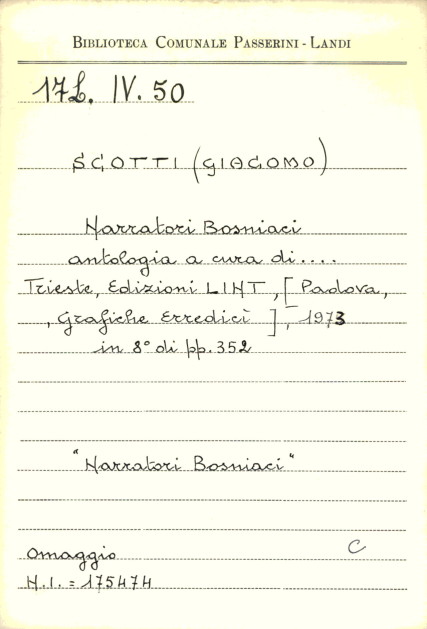 BIBLIOTECA COMUNALE PASSERINI - LANDI
17L. IV. 50
SCOTTI (GIACOMO)
Narratori Bosniaci
antologia a cura di....
Trieste, Edizioni LINT, [Padova,
, Grafiche Erredicì], 1973
in 8° di pp. 352
"Narratori Bosniaci"
Omaggio C
N.I. = 175474